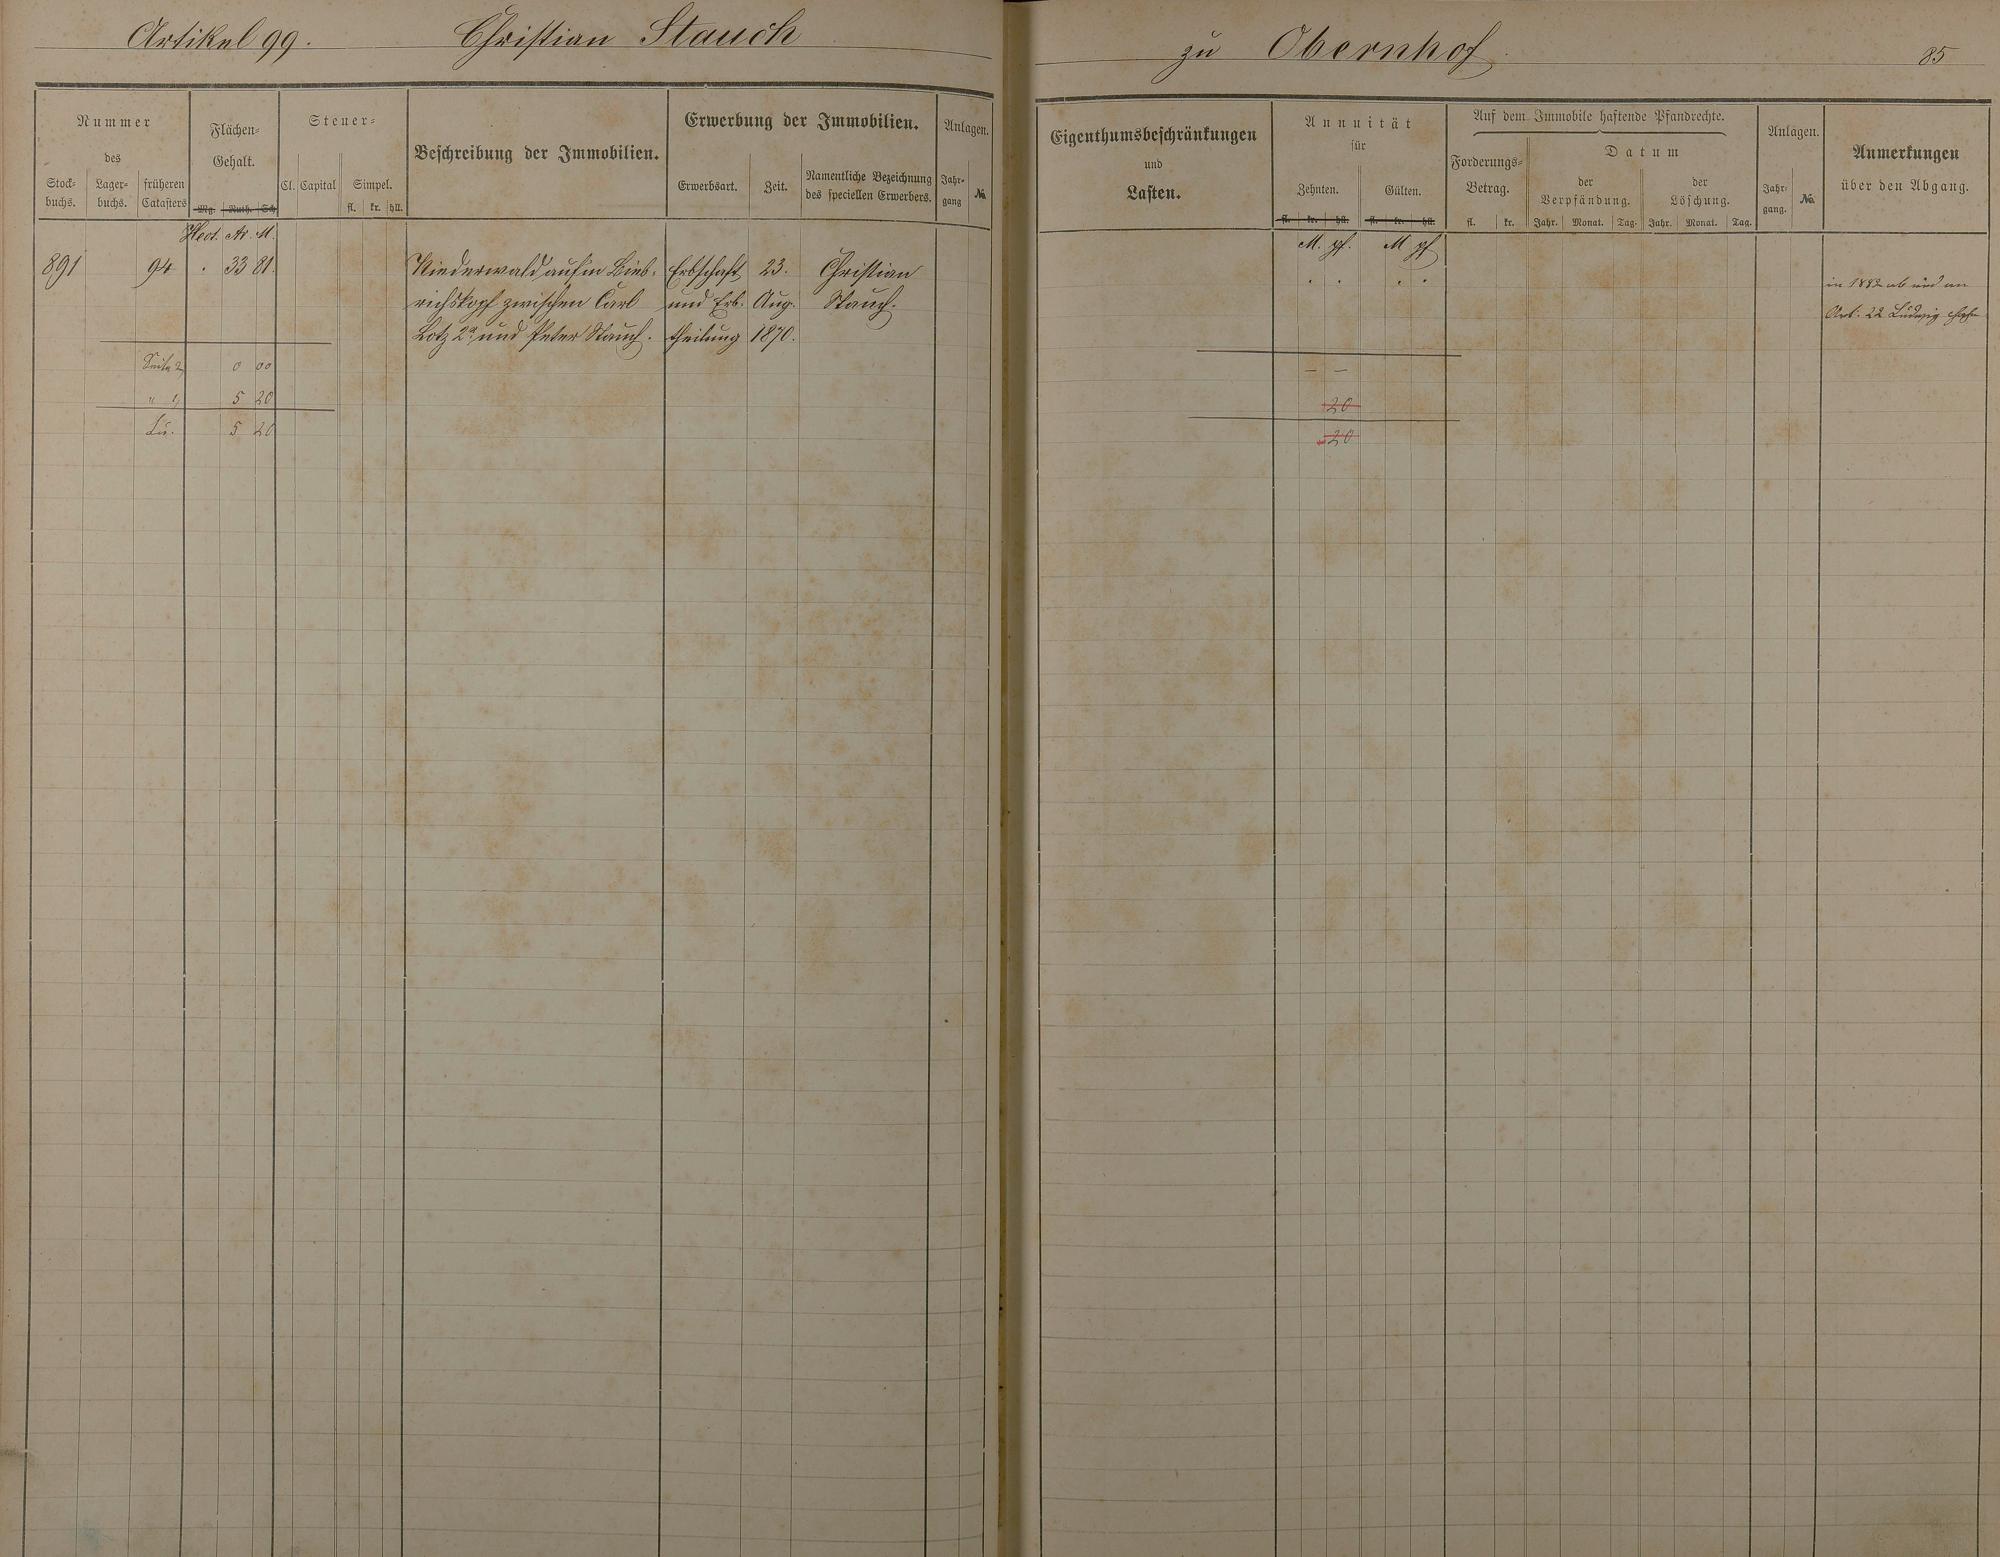 Artikel 99. Christian Stauch
zu Obernhof 85
Nummer
des
Stock-
buchs.
Lager-
buchs.
früheren
Catasters
Flächen-
Gehalt.
Mg. Ruth. Sch.
Hect. Ar. M.
Steuer-
Cl. Capital Simpel.
fl. kr. hll.
Beschreibung der Immobilien.
Erwerbung der Immobilien.
Erwerbsart. Zeit.
Namentliche Bezeichnung
des speciellen Erwerbers.
Anlagen.
Jahr-
gang
No.
891 94 . 33 81.
Niederwald auf'm Bieb-
richskopf zwischen Carl
Lotz 2r und Peter Stauch.
Erbschaft
und Erb-
theilung
23.
Aug.
1870.
Christian
Stauch.
Seite 2, 0 00
" 1, 5 20
5 20
Eigenthumsbeschränkungen
und
Lasten.
Annuität
für
Zehnten. Gülten.
fl. kr. hll. fl. kr. hll.
M. pf. M pf
. . . .
— —
20
20
Auf dem Immobile haftende Pfandrechte.
Forderungs-
Betrag.
fl. kr.
Datum
der
Verpfändung.
Jahr. Monat. Tag.
der
Löschung.
Jahr. Monat. Tag.
Anlagen.
Jahr-
gang.
No.
Anmerkungen
über den Abgang.
in 1882 ab und an
Art. 22 Ludwig